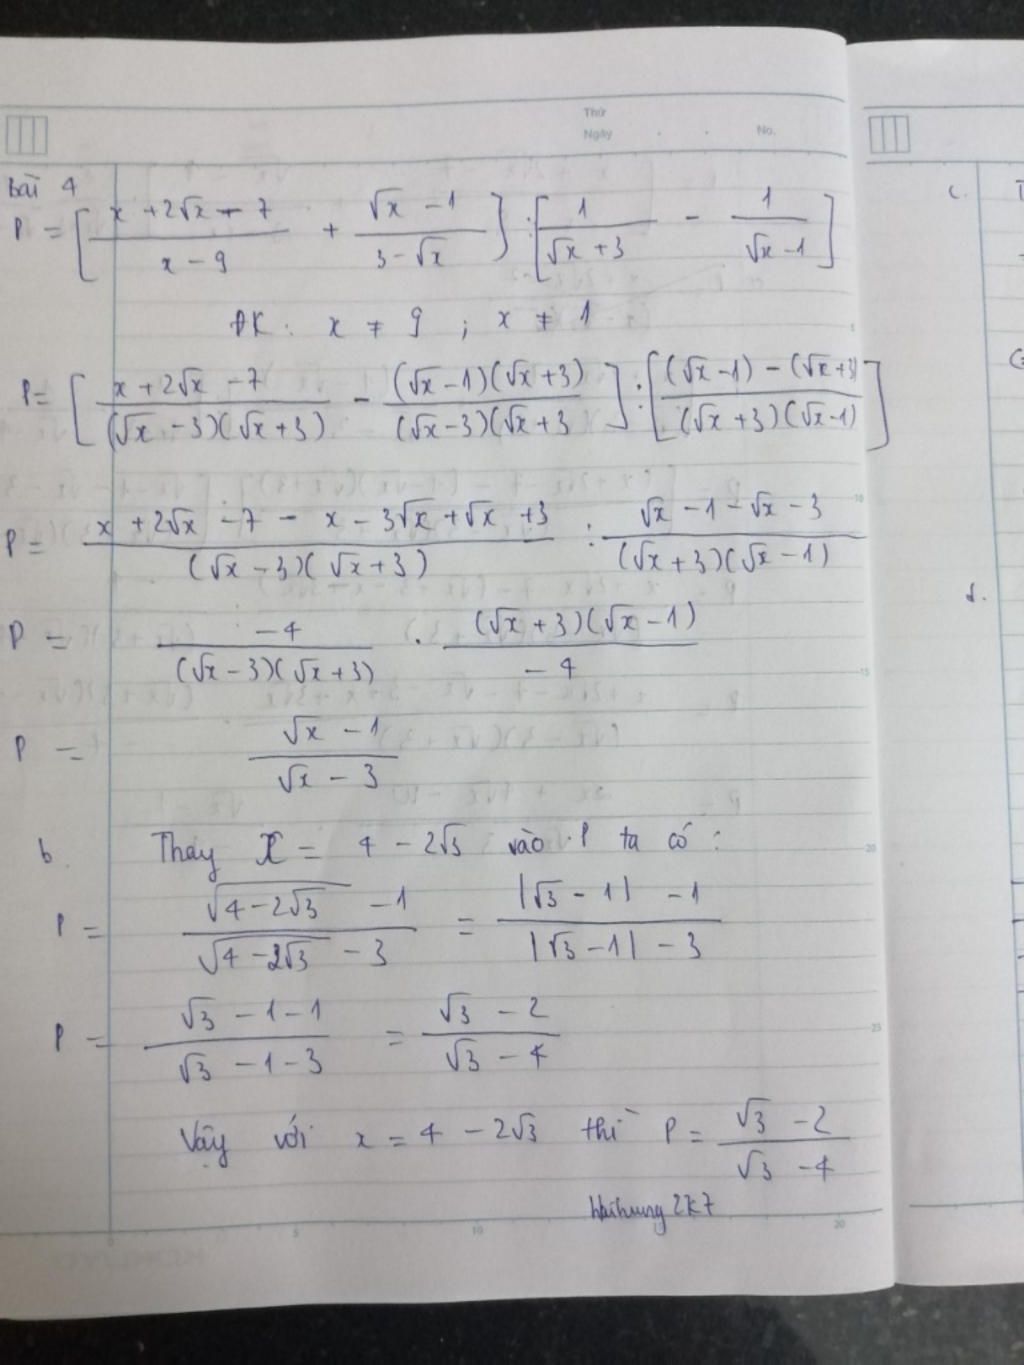 Thứ
Ngày . . No.
Bài 4
P = [ (x + 2√x - 7)/(x - 9) + (√x - 1)/(3 - √x) ] : [ 1/(√x + 3) - 1/(√x - 1) ]
ĐK : x ≠ 9 ; x ≠ 1
P = [ (x + 2√x - 7)/((√x - 3)(√x + 3)) - ((√x - 1)(√x + 3))/((√x - 3)(√x + 3 ] : [ ((√x - 1) - (√x + 3))/((√x + 3)(√x - 1)) ]
P = (x + 2√x - 7 - x - 3√x + √x + 3)/((√x - 3)(√x + 3)) : (√x - 1 - √x - 3)/((√x + 3)(√x - 1))
P = -4/((√x - 3)(√x + 3)) . ((√x + 3)(√x - 1))/-4
P = (√x - 1)/(√x - 3)
b. Thay x = 4 - 2√3 vào P ta có :
P = (√(4 - 2√3) - 1)/(√(4 - 2√3) - 3) = (|√3 - 1| - 1)/(|√3 - 1| - 3)
P = (√3 - 1 - 1)/(√3 - 1 - 3) = (√3 - 2)/(√3 - 4)
Vậy với x = 4 - 2√3 thì P = (√3 - 2)/(√3 - 4)
Haihung 2k7
5 10 20
5
10
15
20
25
c.
d.